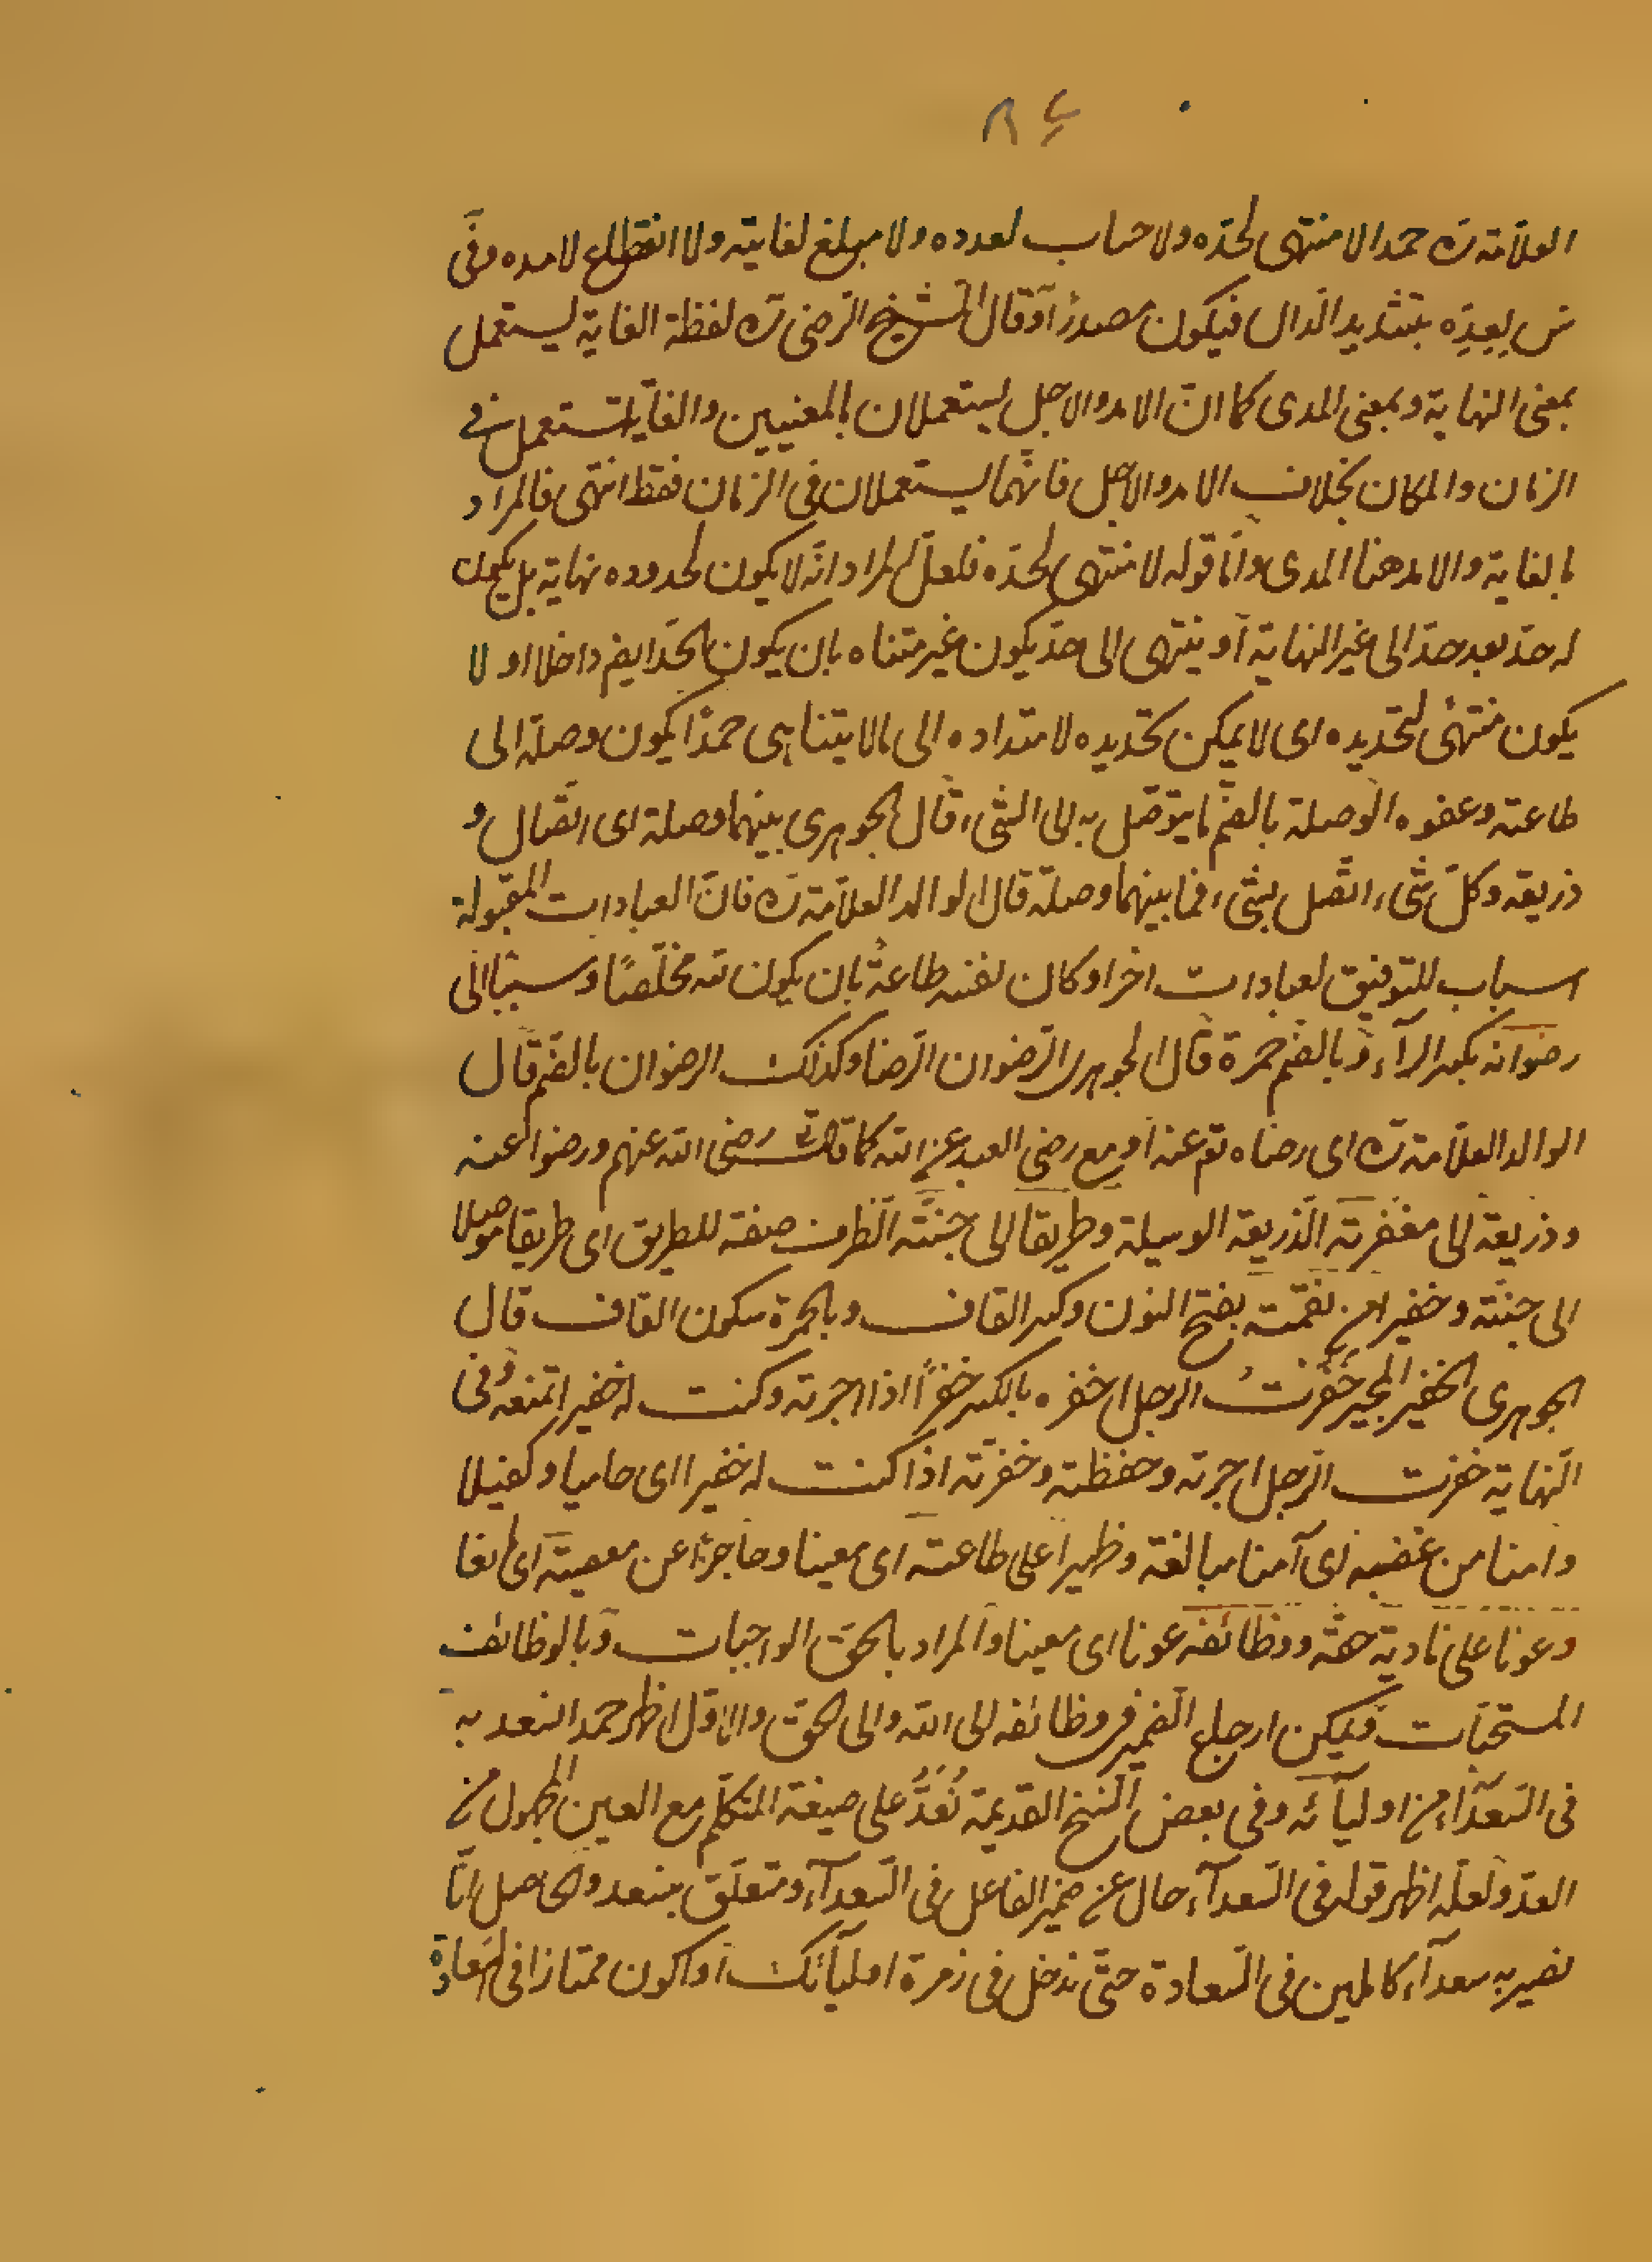 العلّامة ره حمدا لا منتهى لحدّه ولا حساب لعدده ولا مبلغ لغايته ولا انقطاع لامده وفى
س بعدّه بتشديد الدال فيكون مصدرًا وقال الشيخ الرضى ره لفظة الغاية يستعمل
بمعنى النهاية وبمعنى المدى كما انّ الامد والاجل يستعملان بالمعنيين والغاية تستعمل فى
الزمان والمكان بخلاف الامد والاجل فانّهما يستعملان فى الزمان فقط انتهى فالمراد
بالغاية والامد هنا المدى وامّا قوله لا منتهى لحدّه فلعلّ المراد انّه لا يكون لحدوده نهاية بل يكون
له حدّ بعد حدّ الى غير النهاية او ينتهى الى حدّ يكون غير متناه بان يكون الحدّ ايضم داخلا او لا
يكون منتهى لتحديده اى لا يمكن تحديده لامتداده الى مالا يتناهى حمدًا يكون وصلة الى
طاعته وعفوه الوصلة بالضّم ما يتوصّل به الى الشىء قال الجوهرى بينهما وصلة اى اتّصال و
ذريعة وكلّ شىء اتّصل بشىء فما بينهما وصلة قال الوالد العلّامة ره فانّ العبادات المقبولة
اسباب للتوفيق لعبادات اخر او كان نفسه طاعة بان يكون لله مخلصًا وسببًا الى
رضوانه بكسر الرآء وبالضّم حمرة قال الجوهرى الرّضوان الرّضا وكذلك الرضوان بالضّم قال
الوالد العلّامة ره اى رضاه تعم عنه او مع رضى العبد عن الله كما قال تع رضى الله عنهم ورضوا عنه
وذريعة الى مغفرته الذّريعة الوسيلة وطريقا الى جنّته الظرف صفة للطريق اى طريقا موصلا
الى جنّته وخفيرا من نقمته بفتح النون وكسر القاف وبالحمرة سكون القاف قال
الجوهرى الخفير المجير خَفَرْتُ الرجل اخفره بالكسر خفرًا اذا اجرته وكنت له خفيرا تمنعه وفى
النّهاية خفرت الرّجل اجرته وحفظته وخفرته اذا كنت له خفيرا اى حاميا وكفيلا
وامنا من غضبه اى آمنا مبالغة وظهيرا على طاعته اى معينا وحاجزًا عن معصيته اى مانعا
وعونا على تادية حقّه ووظائفه عونا اى معينا والمراد بالحقّ الواجبات وبالوظائف
المستحبّات ويمكن ارجاع الضّمير فى وظائفه الى الله والى الحقّ والاوّل اظهر حمدا نسعد به
فى السّعدآء من اوليآئه وفى بعض النّسخ القديمة نُعَدُّ على صيغة المتكلّم مع الغير المجهول من
العدّ ولعلّه اظهر قوله فى السّعدآء حال عن ضمير الفاعل فى السّعدآء ومتعلّق بنسعد والحاصل انّا
نصير به سعدآء كاملين فى السّعادة حتّى ندخل فى زمرة اوليآئك او اكون ممتازا فى السّعادة